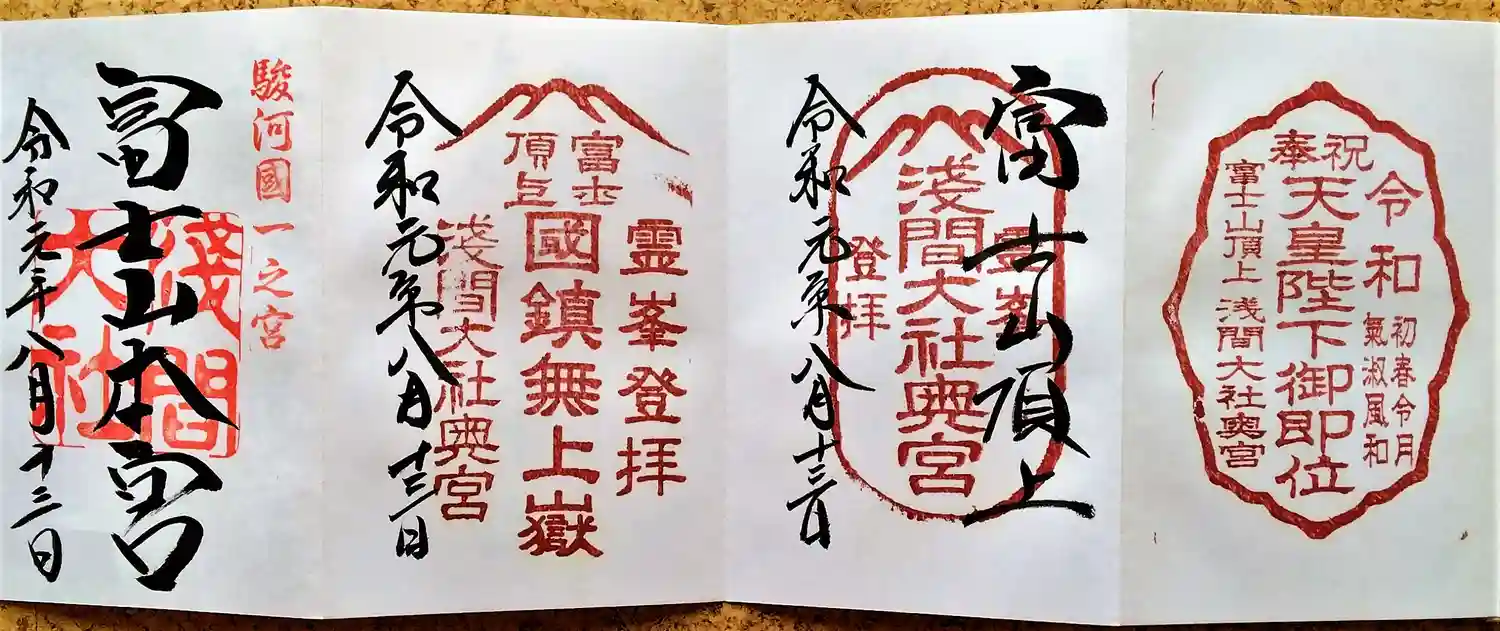 駿河國一之宮
富士山本宮
淺間大社
令和元年八月十三日
富士頂上
靈峯登拝
國鎮無上嶽
淺間大社奥宮
令和元年八月十三日
富士山頂上
靈峯登拝
淺間大社奥宮
令和元年八月十三日
奉祝
令和
初春令月
氣淑風和
天皇陛下御即位
富士山頂上 淺間大社奥宮